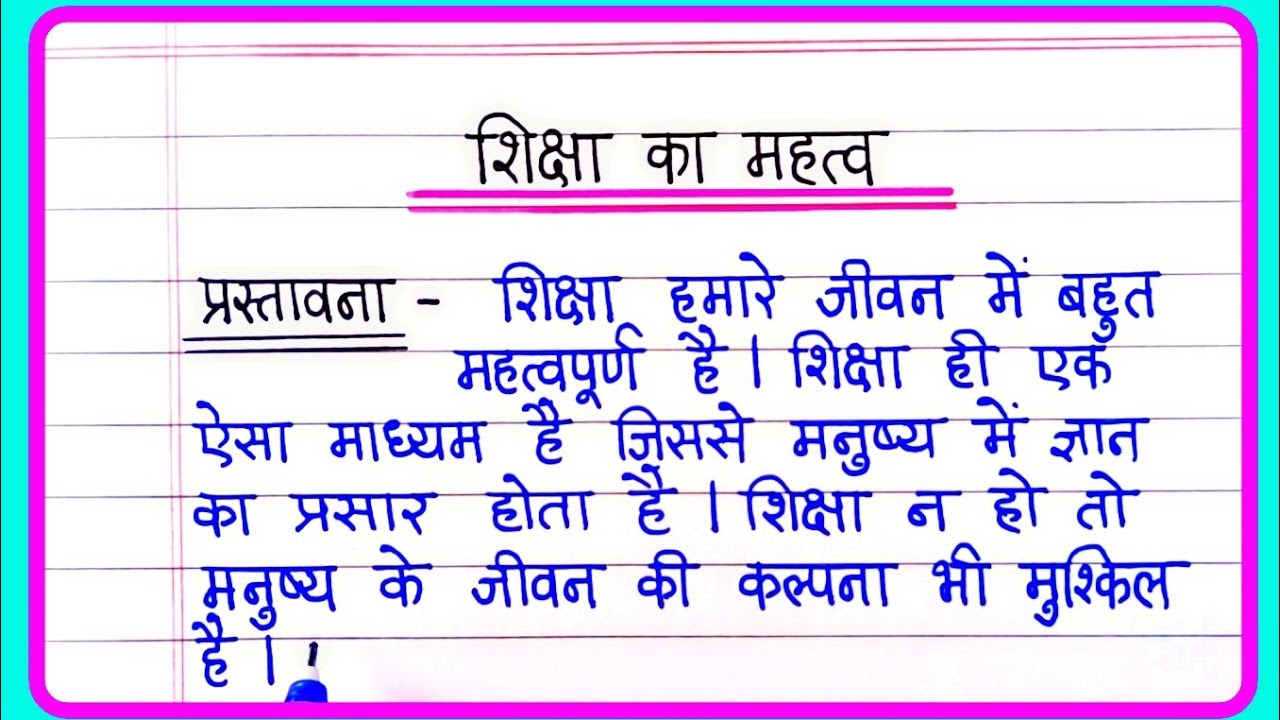 शिक्षा का महत्व
प्रस्तावना - शिक्षा हमारे जीवन में बहुत
महत्वपूर्ण है। शिक्षा ही एक
ऐसा माध्यम है जिससे मनुष्य में ज्ञान
का प्रसार होता है। शिक्षा न हो तो
मनुष्य के जीवन की कल्पना भी मुश्किल
है।